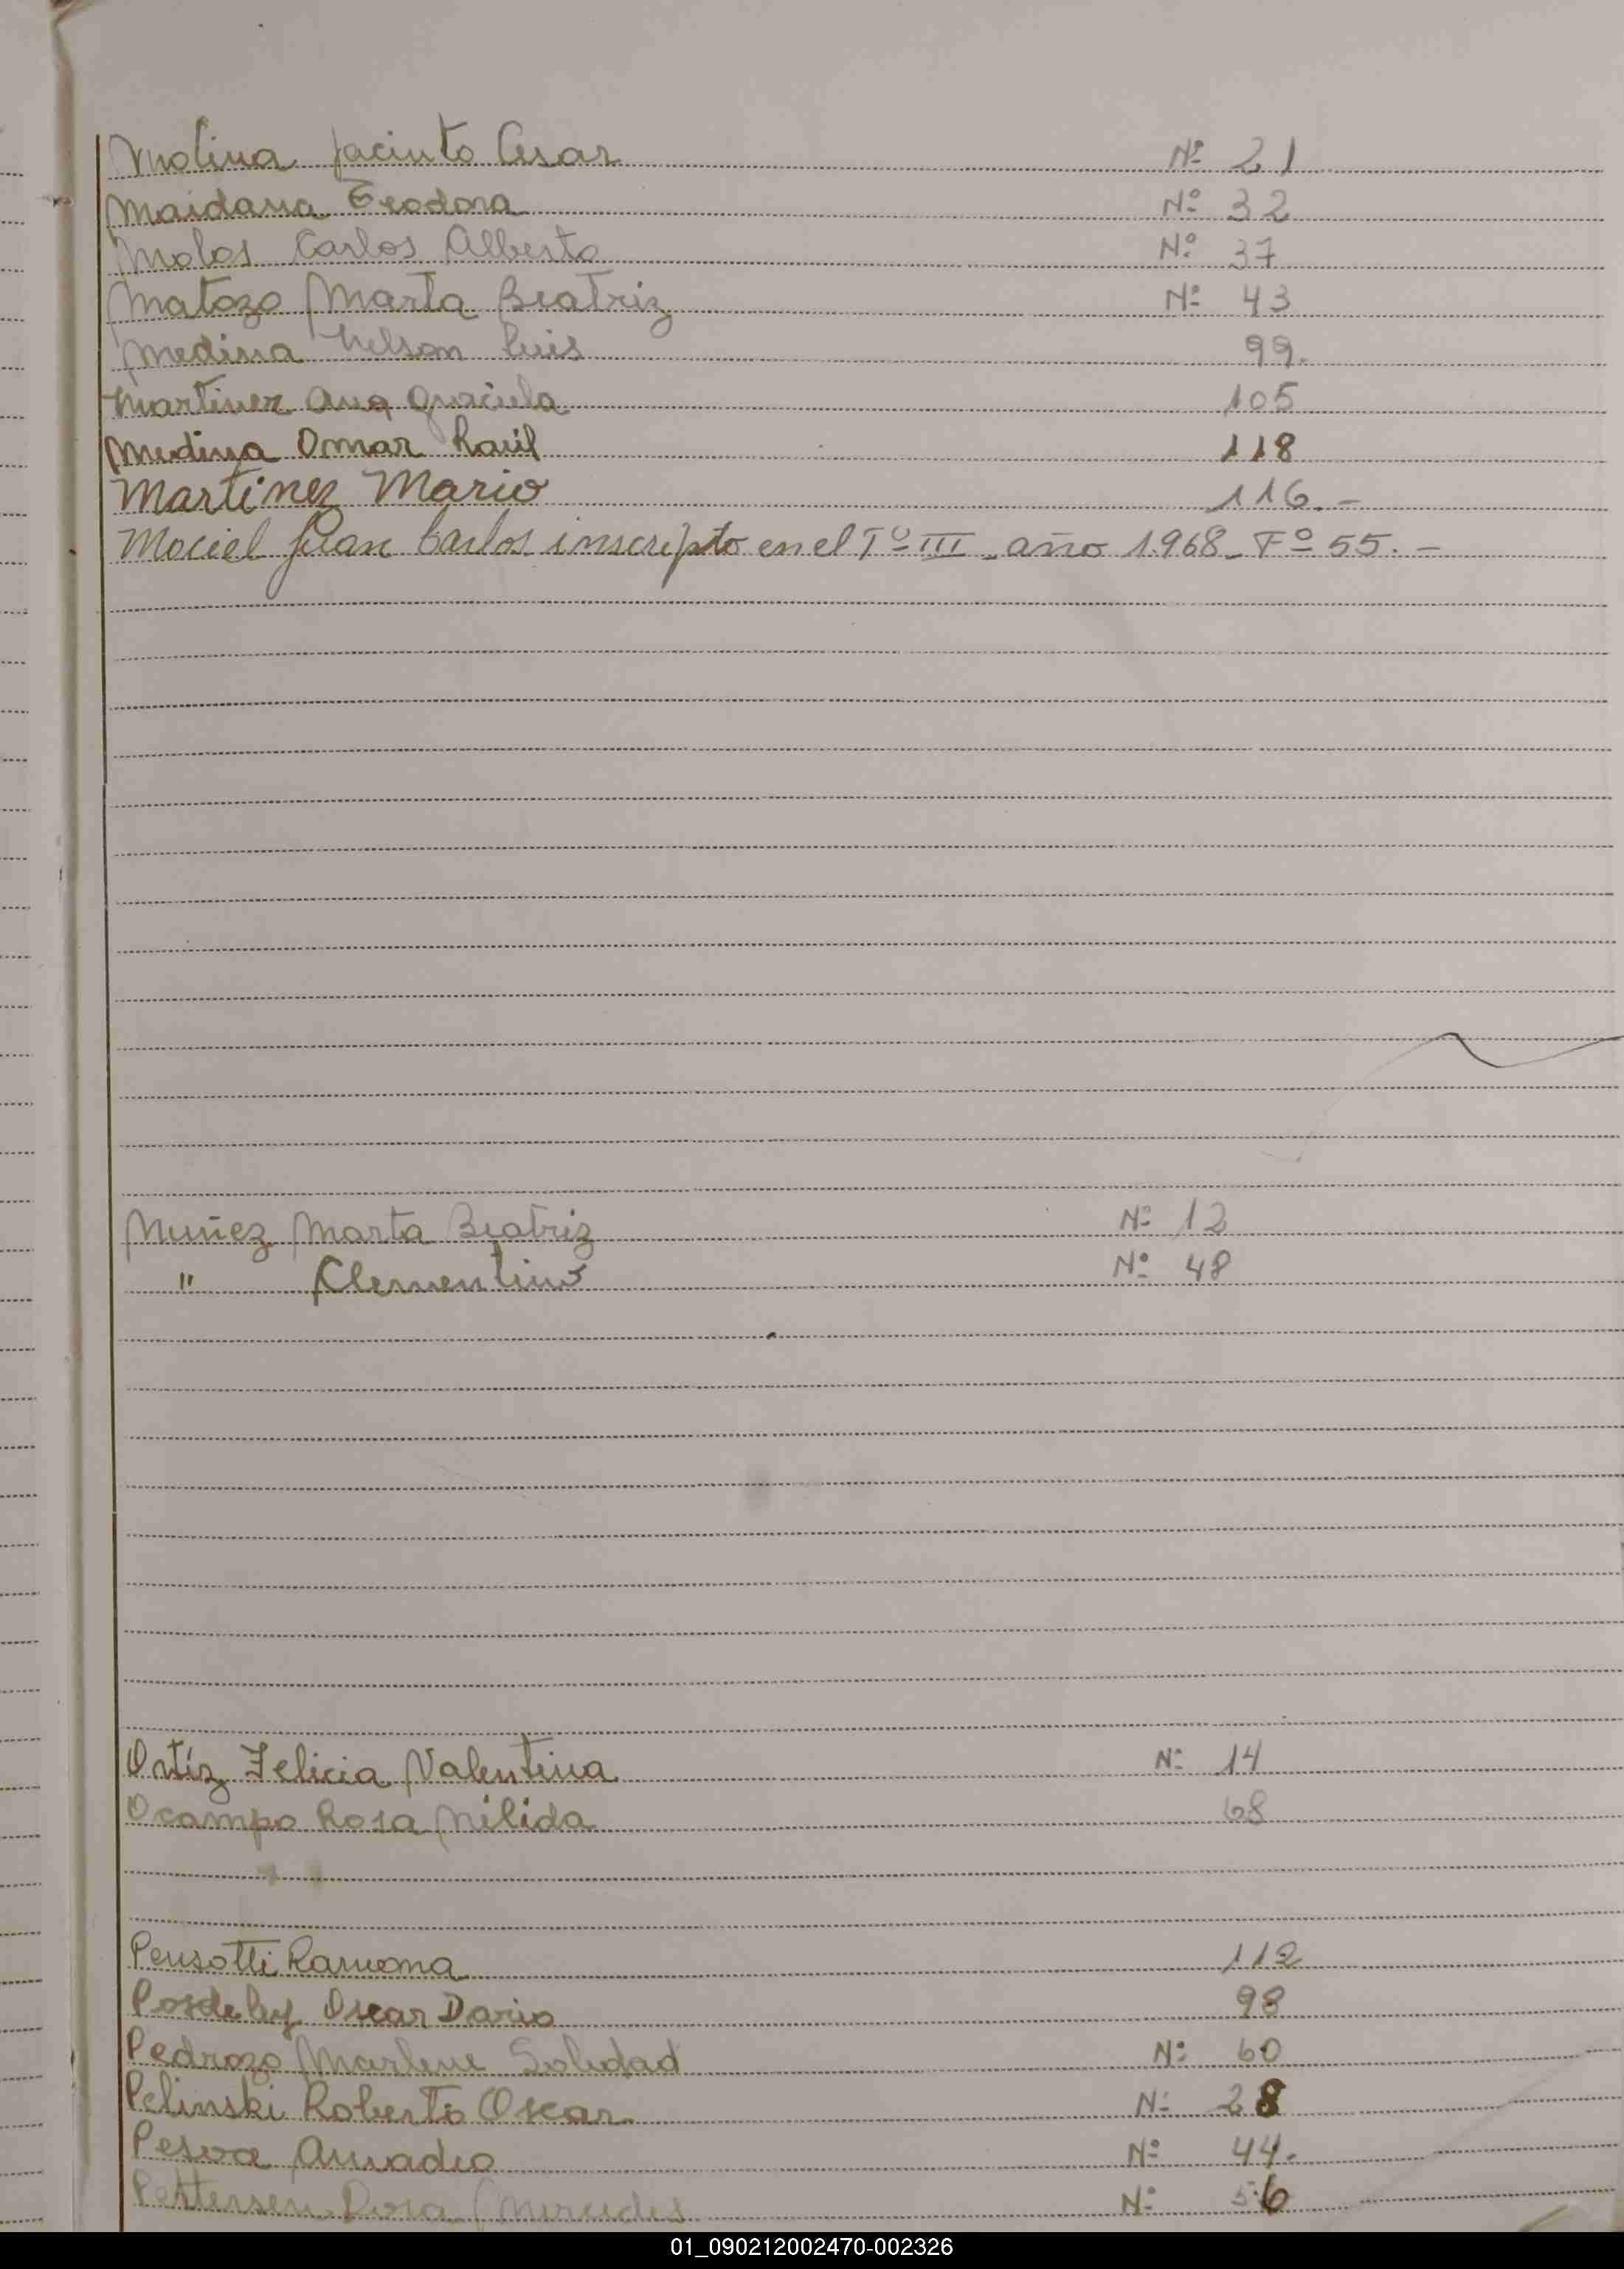 Molina Jacinto Cesar Nº 21
Maidana Teodora Nº 32
Molos Carlos Alberto Nº 37
Matozo Marta Beatriz Nº 43
Medina Nelson Luis 99.
Martinez Ana Graciela 105
Medina Omar Raúl 118
Martinez Mario 116.-
Maciel Juan Carlos inscripto en el Tº III - año 1968 - Fº 55. -
Nuñez Marta Beatriz Nº 12
" Clementino Nº 48
Ortíz Felicia Valentina Nº 14
Ocampo Rosa Nélida 68
Pensotti Ramona 112
Oscar Dario 98
Pedrozo Marlene Soledad Nº 60
Pelinski Roberto Oscar Nº 28
Pesoa Amadeo Nº 44.
Pettersen Dora Mercedes Nº 56
01_090212002470-002326